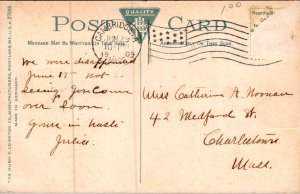 POST CARD
QUALITY
CAMBRIDGE
JUN 23
19 09
1.00
MESSAGE MAY BE WRITTEN ON THIS SIDE
ADDRESS ONLY ON THIS SIDE
Place
THE HUGH C. LEIGHTON CO., MANUFACTURERS, PORTLAND, ME., U.S.A.
MADE IN GERMANY.
We were disappointed
June 17 not
seeing you come
over Soon.
Yours in haste
Julia.
Miss Catherine A. Noonan
42 Medford St
Charlestown
Mass.